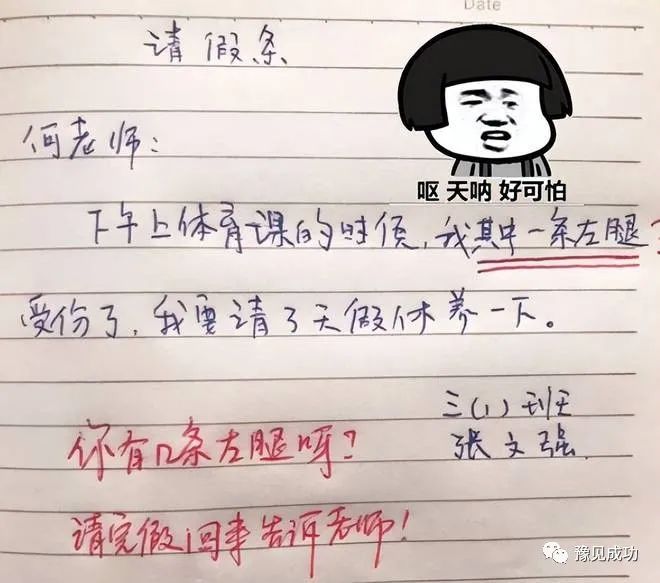 Date
请假条
何老师:
呕 天呐 好可怕
下午上体育课的时候,我其中一条左腿?
受伤了,我要请3天假休养一下。
三(1)班
张文强
你有几条左腿呀?
请完假回来告诉老师!
豫见成功